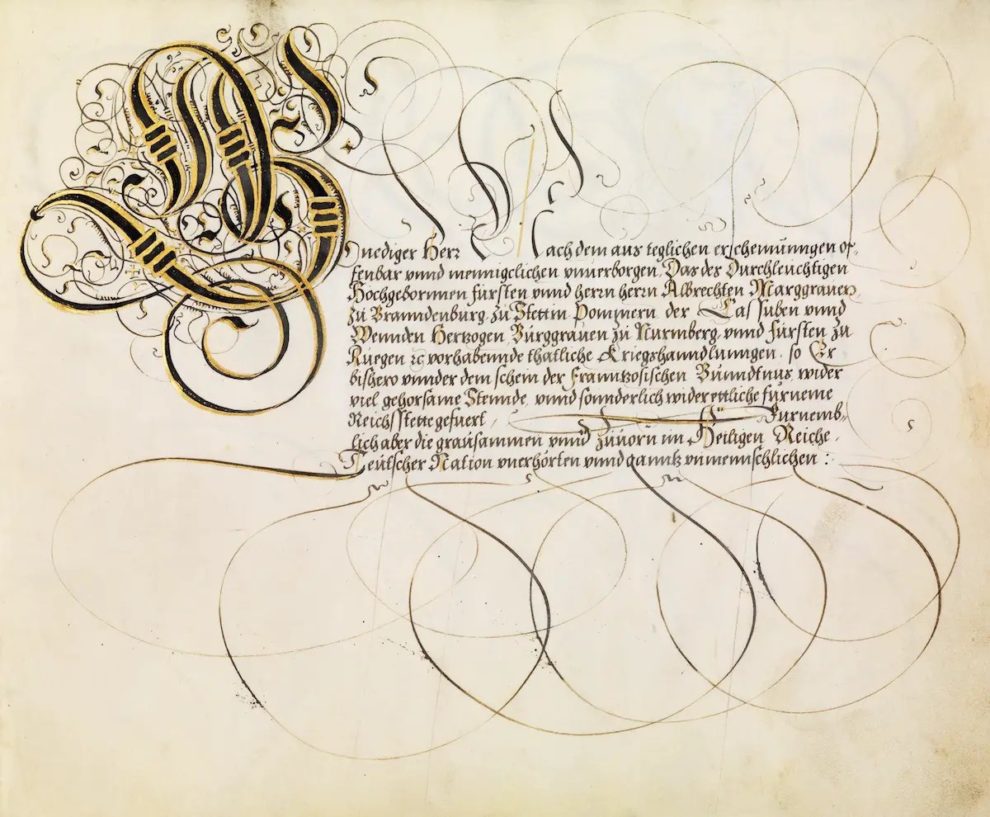 Gnediger Herr Nach dem aus teglichen erscheinŭnngen of-
fenbar vnnd mennigclichen vnuerborgen, Das des Dŭrchleŭchtigen
Hochgebornnen fürsten vnnd herrn herrn Albrechten Marggrauen
zŭ Branndenbŭrg, zŭ Stettin Pommern der Cassŭben vnnd
Wennden Hertzogen, Bŭrggrauen zŭ Nŭrmberg, vnnd fürsten zŭ
Rŭegen ꝛc vorhabennde thatliche Kriegshanndlŭnngen, so Er
bishero vnnder dem schein der Franntzosischen Bŭndtnus, wider
viel gehorsame Stennde, vnnd sonnderlich wider ettliche fŭrneme
Reichs Stette gefuert, Fŭrnemb-
lich aber die graŭsammen vnnd zŭuorn im Heiligen Reiche
Teŭtscher Nation vnerhörten vnnd ganntz vnmennschlichen :